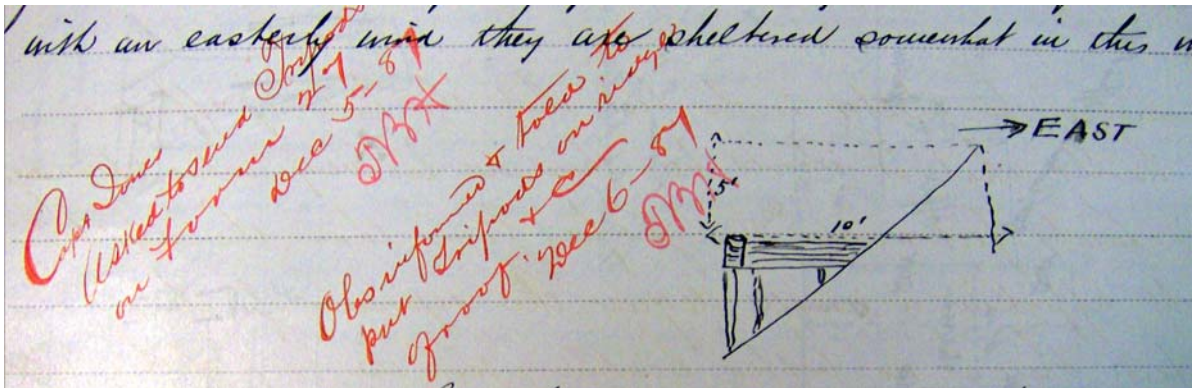 with an easterly wind they are sheltered somewhat in this
Capt
asked to send Tripods
on form
Dec 5-87
Obs informed & told to
put tripods on ridge
of roof.
Dec 6-87
EAST
5'
10'